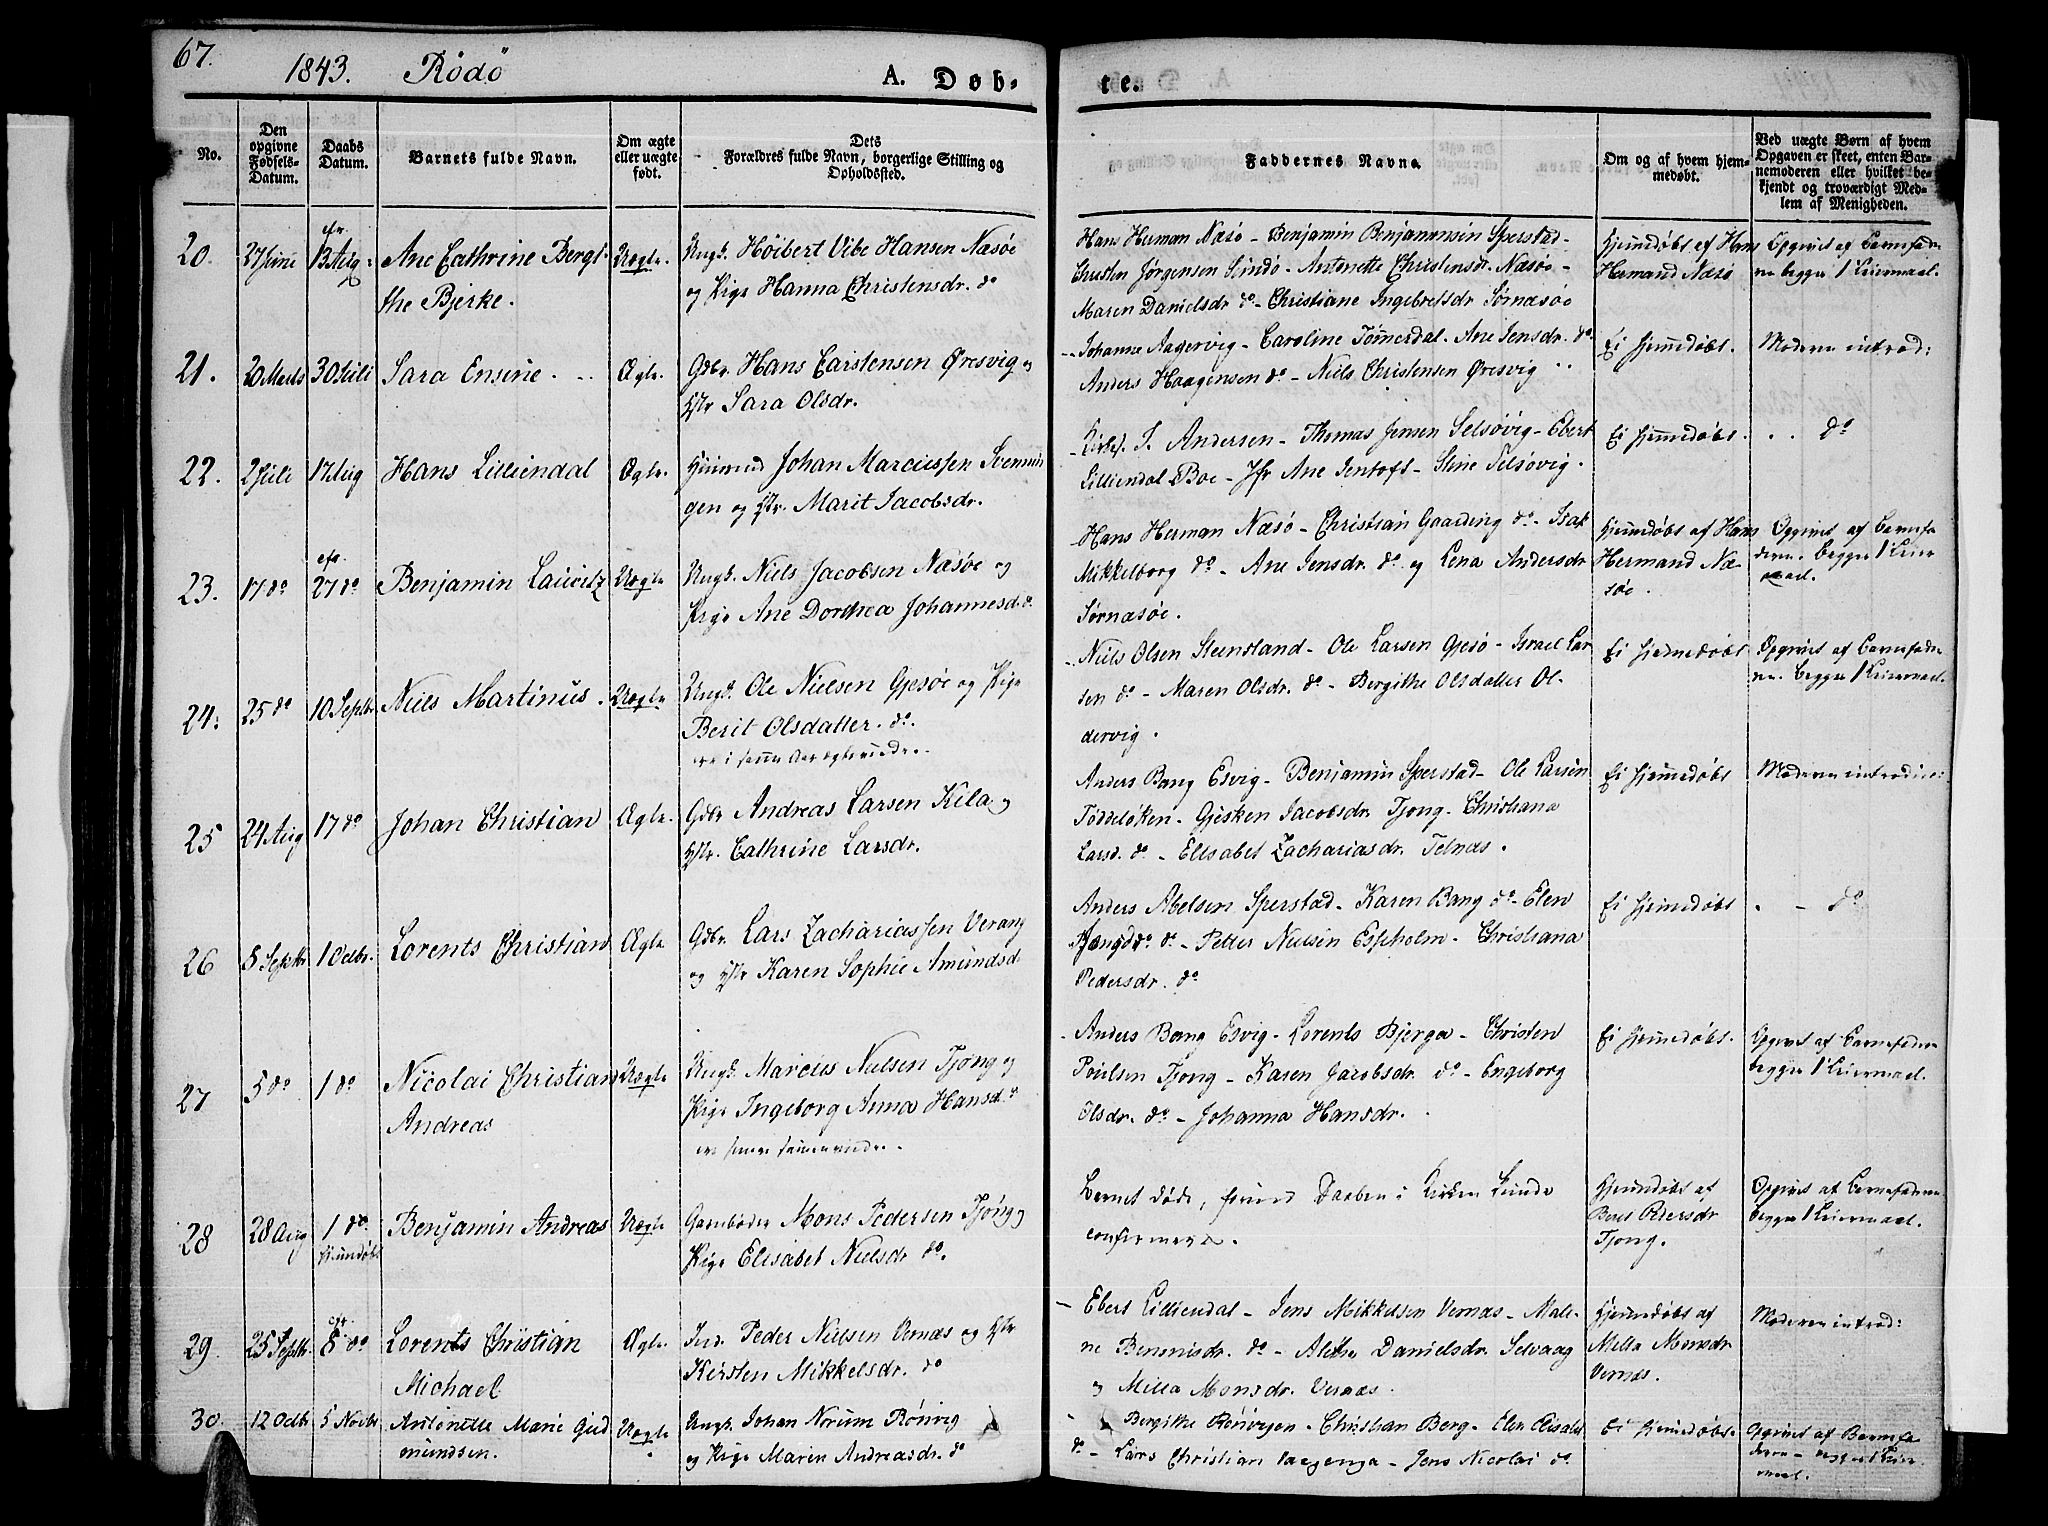 67.
1843. Rödö
A. Døb-
te.
No.
Den opgivne Fødsels-Datum.
Daabs Datum.
Barnets fulde Navn.
Om ægte eller uægte født.
Dets Forældres fulde Navn, borgerlige Stilling og Opholdssted.
Faddernes Navne.
Om og af hvem hjemmedøbt.
Ved uægte Børn af hvem Opgaven er skeet, enten Barnemoderen eller hvilket bekjendt og troværdigt Medlem af Menigheden.
20. 27 Juni cfr. 13 Aug Ane Cathrine Bergit- Uægte. Ungk. Höibert Vibe Hansen Næsöe
the Bjerke. og Pige Hanna Christensdr. do
Hans Herman Næsö - Benjamin Benjaminsen Sperstad -
Christen Jörgensen Sundö - Antonette Christensdr. Næsöe -
Maren Danielsdr do - Christiane Ingebretsdr Sörnæsöe
Hjemedöbt af Hans
Hermand Næsö
Opgivet af Barnefade-
ren begges 1 Leiermaal.
21. 20 Marts 30 Juli Sara Ensine Ægte. Gdbr. Hans Carstensen Øresvig og
Hstr Sara Olsdr.
Johanne Aagervig - Caroline Tömerdal - Ane Jensdr. do
Anders Haagensen do - Niels Christensen Øresvig
Ei hjemedöbt.
Moderen introd:
22. 2 Juli 17 Aug Hans Lilliendal Ægte. Huusmand Johan Marcussen Svennin
gen og Hstr. Marit Jacobsdr.
Andersen - Thomas Jensen Selsövig - Ebert
Lilliendal Boe - Jfr Ane Jentoft - Stine Selsövig.
Ei hjemedöbt.
do
23. 17 do cfr. 27 do Benjamin Lauritz Uægte Ungk. Niels Jacobsen Næsöe og
Pige Ane Dorthea Johannesd. do
Hans Herman Næsö - Christian Gaarding do - Isak
Mikkelborg do - Ane Jensdr. do og Lena Andersdr
Sörnæsöe.
Hjemedöbt af Hans
Hermand Næ-
söe.
Opgivet af Barnefa
deren. begges 1 Leier
maal.
24. 25 do 10 Septbr. Niels Martinus. Uægte Ungk. Ole Nielsen Gjesöe og Pige
Berit Olsdatter. do.
Niels Olsen Steensland - Ole Larsen Gjesö - Israel Lar
sen do - Maren Olsdr. do - Bergithe Olsdatter Ol-
dervig.
Ei hjemedöbt
Opgivet af Barnefade-
ren. begges 1 Leiermaal.
25 24 Aug 17 do Johan Christian Ægte. Gdbr Andreas Larsen Kila og
Hstr. Cathrine Larsdr.
Anders Bang Esvig - Benjamin Sperstad - Ole Larsen
Töddelöken - Gjesken Jacobsdr Tjong - Christiana
Larsd. do - Elisabet Zachariasdr. Telnæs.
Ei hjemedöbt
Moderen introduce:
26 5 Septbr 1 Octbr. Lorents Christian Ægte. Gdbr. Lars Zachariassen Verang
og Hstr Karen Sophie Amundsd.
Anders Abelsen Sperstad - Karen Bang do - Elen
do - Petter Nielsen Espholm - Christiana
Pedersdr. do
Ei hjemedöbt
do
27 5 do 1 do Nicolai Christian Uægte Ungk. Marcus Nielsen Tjong og
Andreas Pige Ingeborg Anna Hansd. do
Anders Bang Esvig - Lorents Bjerga - Christen
Poulsen Tjong - Karen Jacobsdr. do - Engeborg
Olsdr. do - Johanna Hansdr.
Ei hjemedöbt.
Opgivet af Barnefaderen
begges 1 Leiermaal.
28 28 Aug 1 do. Benjamin Andreas Uægte Mons Pedersen Tjong og
hjemedöbt Pige Elisabet Nielsdr do.
Barnet döde, förend Daaben i Kirken kunde
confirmeres.
Hjemedöbt af
Berit Pedersdr
Tjong.
Opgivet af Barnefaderen
begges 1 Leiermaal.
29. 25 Septbr. cfr. 8 do Lorents Christian Ægte. Ind. Peder Nielsen Vernæs og Hstr
Michael Kirsten Mikkelsdr. do
Ebert Lilliendal - Jens Mikkelsen Vernæs - Male-
ne Bensnisdr. do - Alethe Danielsdr. Selvaag
og Milla Monsdr. Vernæs.
Hjemedöbt af
Milla Monsdr
Vernæs.
Moderen introd:
30. 12 Octb 5 Novbr Antonette Marie Gud Uægte Ungk. Johan Norum Rönvig
mundsen. og Pige Maren Andreasdr. do
Bergithe Rönvigen - Christian Berg - Elen Elisabet
do - Lars Christian Vaagenga - Jens Nicolai do.
Ei hjemedöbt.
Opgivet af Barnefa
deren - begges 1 Leier-
maal.